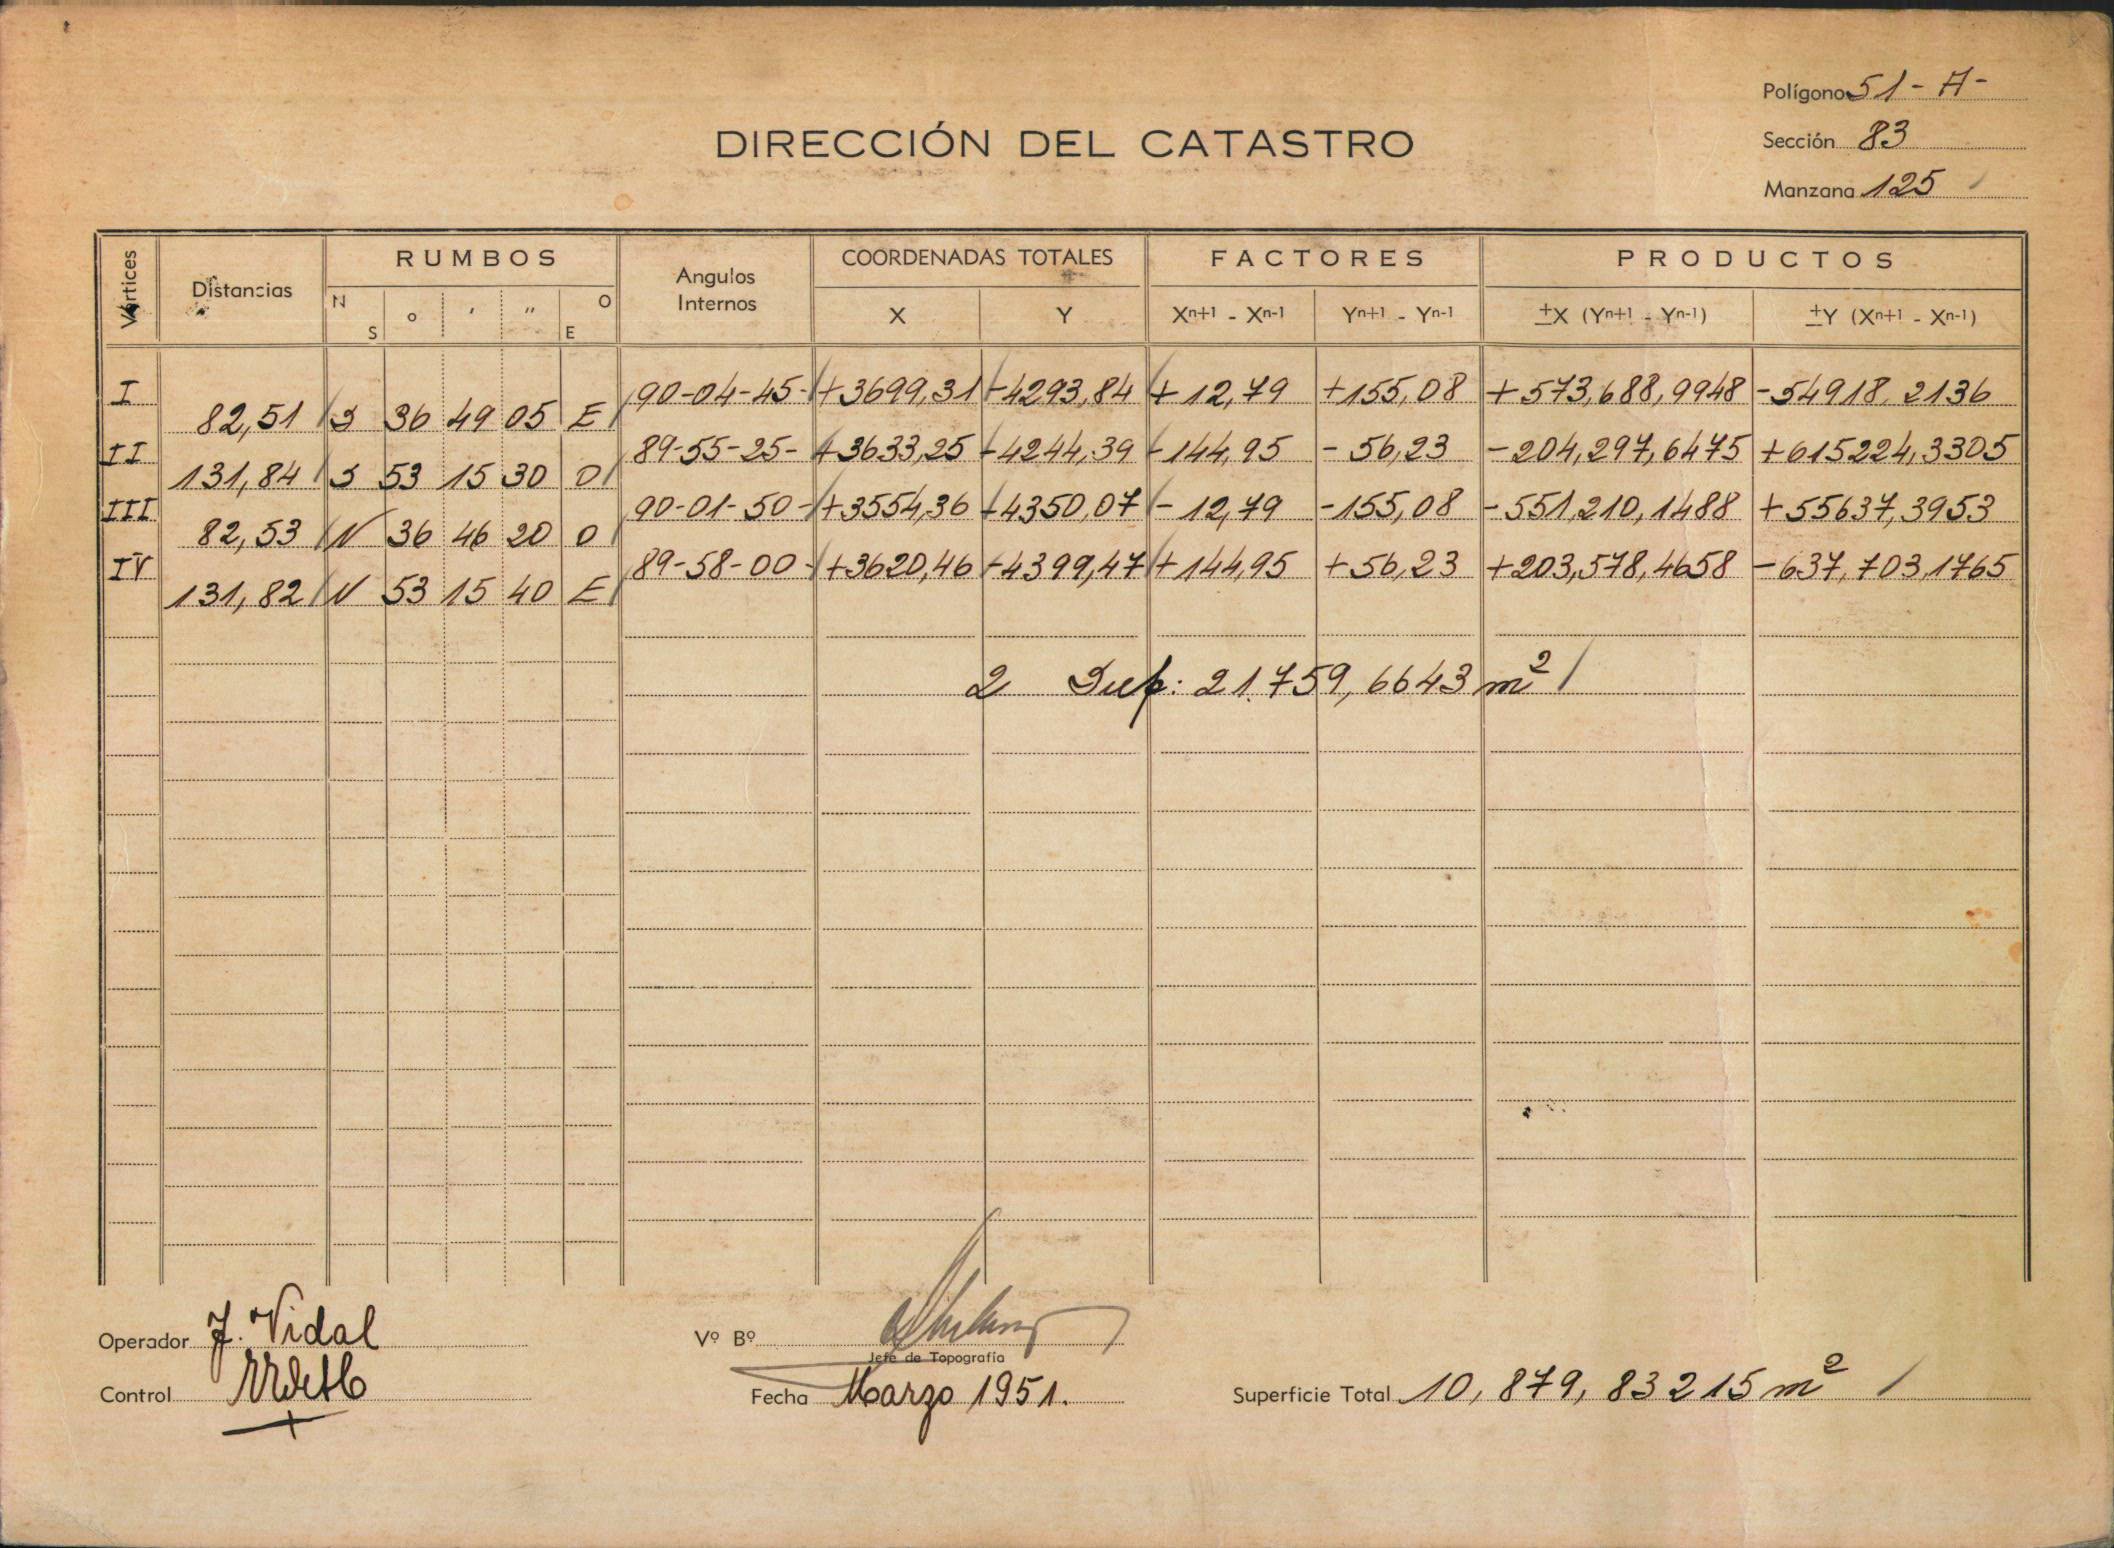 Polígono 51 - A -
DIRECCIÓN DEL CATASTRO
Sección 83
Manzana 125
Vértices Distancias RUMBOS Angulos Internos COORDENADAS TOTALES FACTORES PRODUCTOS
N S o ' " O E X Y Xn+1 - Xn-1 Yn+1 - Yn-1 ±X (Yn+1 - Yn-1) ±Y (Xn+1 - Xn-1)
I 90-04-45- +3699,31 -4293,84 +12,79 +155,08 +573,688,9948 -54918,2136
82,51 S 36 49 05 E
II 89-55-25- +3633,25 -4244,39 -144,95 -56,23 -204,297,6475 +615224,3305
131,84 S 53 15 30 O
III 90-01-50- +3554,36 -4350,07 -12,79 -155,08 -551,210,1488 +55637,3953
82,53 N 36 46 20 O
IV 89-58-00- +3620,46 -4399,47 +144,95 +56,23 +203,578,4658 -637,703,1765
131,82 N 53 15 40 E
2 Sup: 21.759,6643 m²
Operador J. Vidal
Vº Bº
Jefe de Topografía
Control
Fecha Marzo 1951.
Superficie Total 10,879,83215 m²